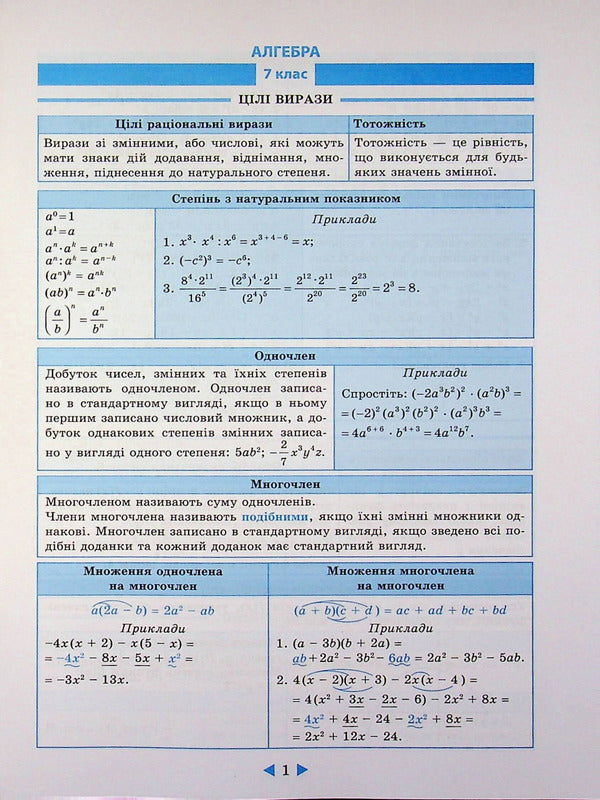 АЛГЕБРА
7 клас
ЦІЛІ ВИРАЗИ
Цілі раціональні вирази
Вирази зі змінними, або числові, які можуть
мати знаки дій додавання, віднімання, мно-
ження, піднесення до натурального степеня.
Тотожність
Тотожність — це рівність,
що виконується для будь-
яких значень змінної.
Степінь з натуральним показником
a⁰=1
a¹=a
aⁿ·aᵏ=aⁿ⁺ᵏ
aⁿ:aᵏ=aⁿ⁻ᵏ
(aⁿ)ᵏ = aⁿᵏ
(ab)ⁿ=aⁿ·bⁿ
(a/b)ⁿ = aⁿ/bⁿ
Приклади
1. x³· x⁴:x⁶=x³⁺⁴⁻⁶=x;
2. (−c²)³ = −c⁶;
3. 8⁴·2¹¹/16⁵ = (2³)⁴·2¹¹/(2⁴)⁵ = 2¹²·2¹¹/2²⁰ = 2²³/2²⁰ = 2³ = 8.
Одночлен
Добуток чисел, змінних та їхніх степенів
називають одночленом. Одночлен записа-
но в стандартному вигляді, якщо в ньому
першим записано числовий множник, а до-
буток однакових степенів змінних записа-
но у вигляді одного степеня: 5ab²; −2/7x³y⁴z.
Приклади
Спростіть: (−2a³b²)² · (a²b)³ =
=(−2)²(a³)²(b²)² · (a²)³b³ =
=4a⁶⁺⁶ · b⁴⁺³=4a¹²b⁷.
Многочлен
Многочленом називають суму одночленів.
Члени многочлена називають подібними, якщо їхні змінні множники од-
накові. Многочлен записано в стандартному вигляді, якщо зведено всі по-
дібні доданки та кожний доданок має стандартний вигляд.
Множення одночлена
на многочлен
a(2a − b) = 2a² − ab
Приклади
−4x(x + 2) − x(5 − x) =
= −4x² − 8x − 5x + x² =
= −3x² − 13x.
Множення многочлена
на многочлен
(a + b)(c + d) = ac + ad + bc + bd
Приклади
1. (a − 3b)(b + 2a) =
ab+2a² − 3b²− 6ab = 2a² − 3b² − 5ab.
2. 4(x − 2)(x + 3) − 2x(x − 4) =
= 4(x² + 3x − 2x − 6) − 2x² + 8x =
= 4x² + 4x − 24 − 2x² + 8x =
= 2x² + 12x − 24.
◀ 1 ▶